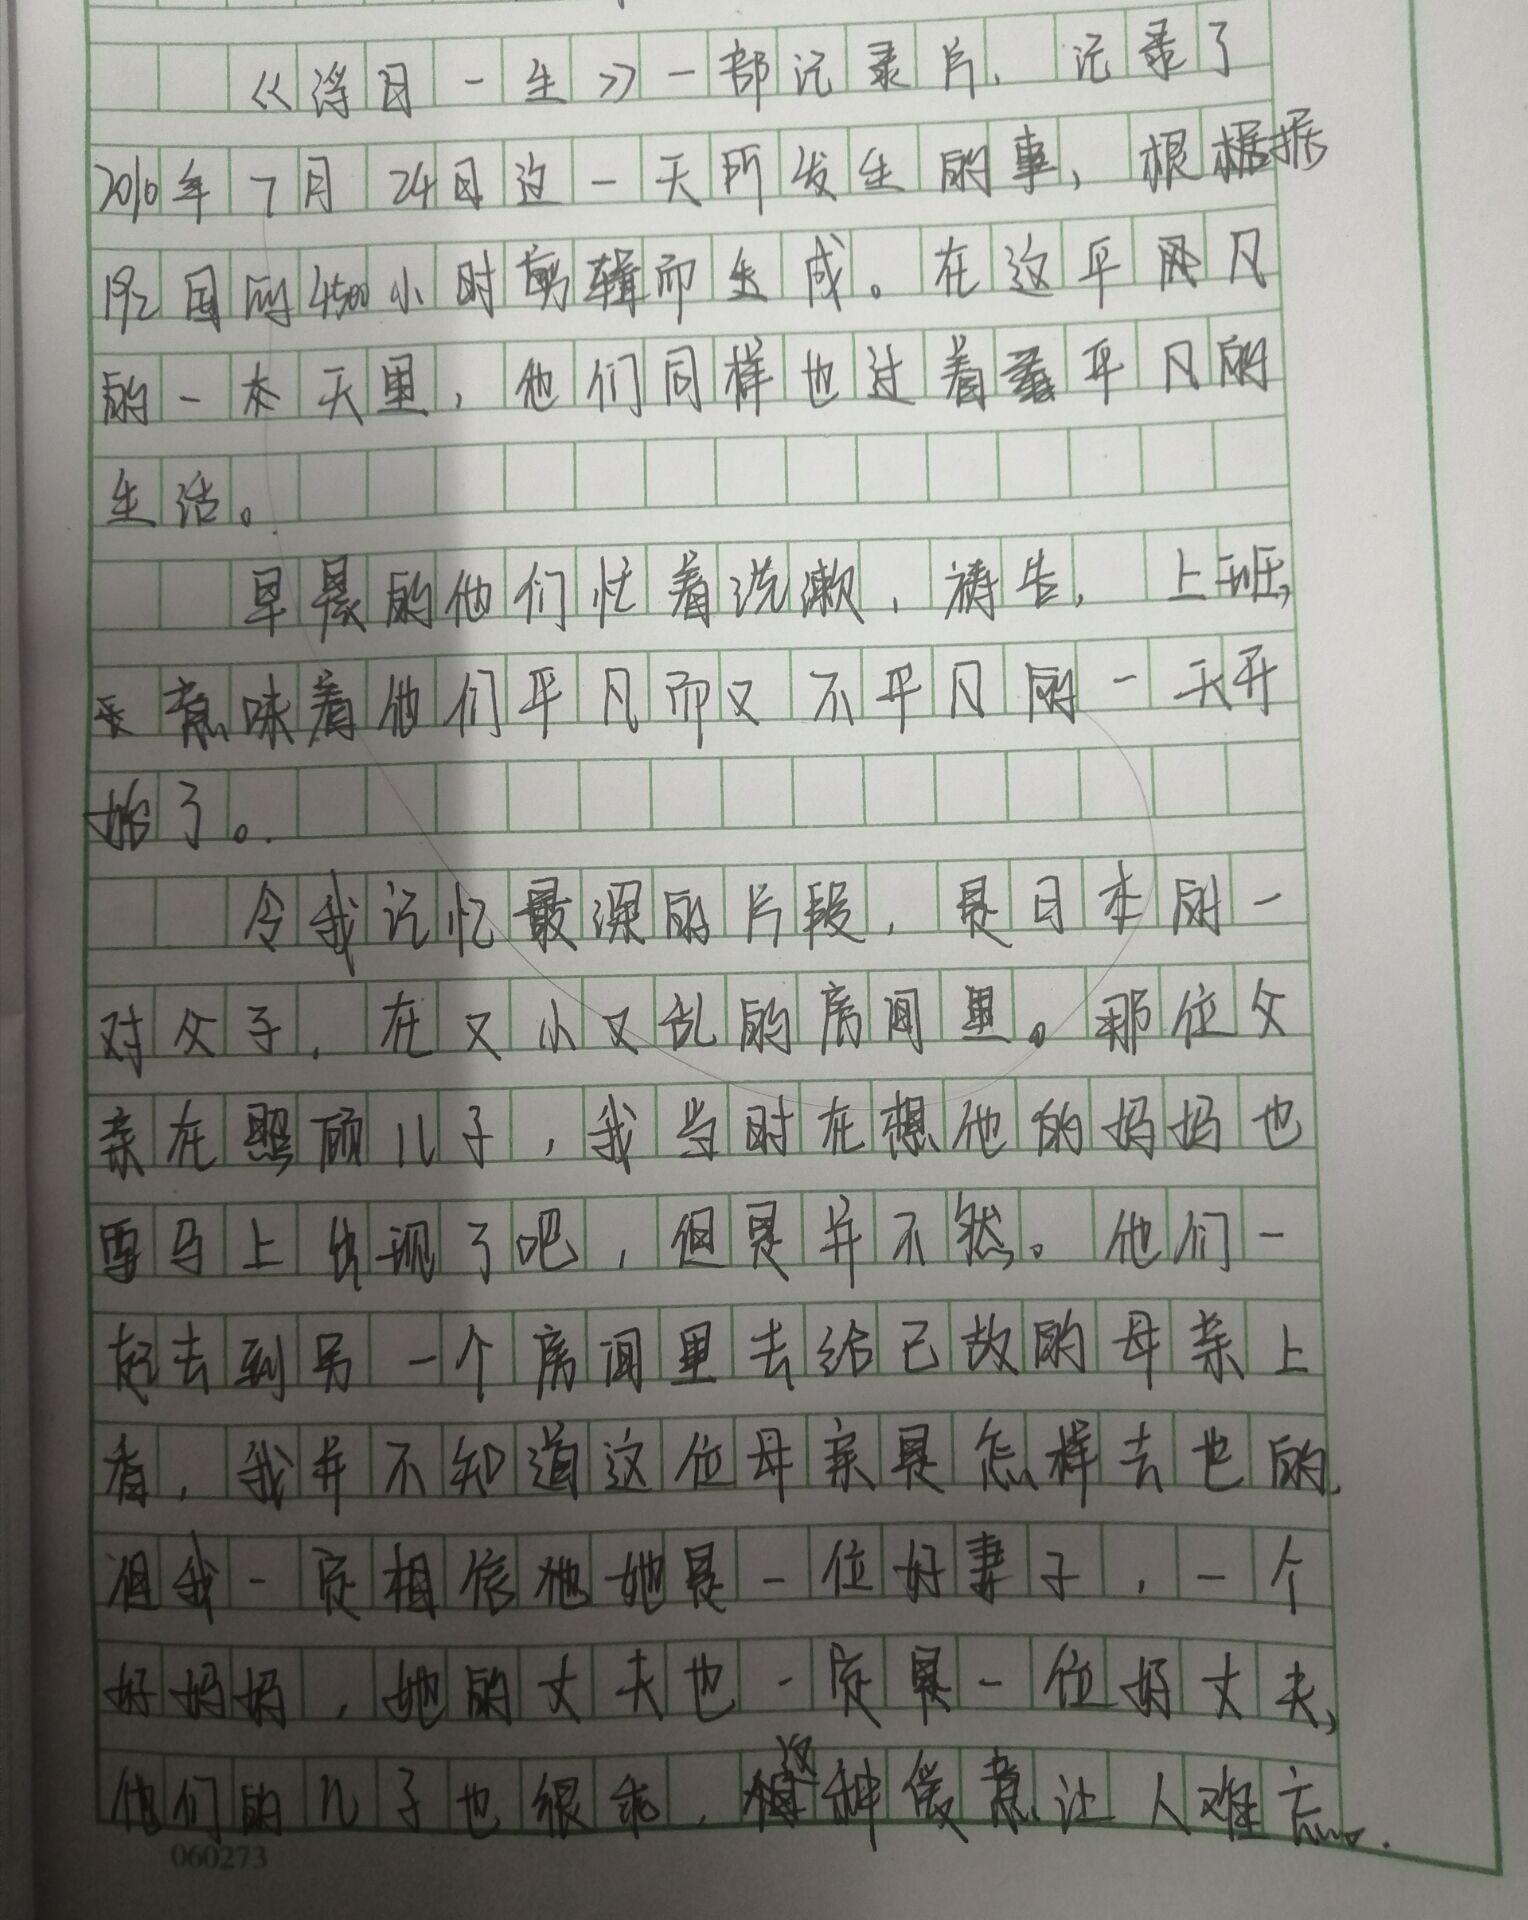 《浮日一生》一部记录片，记录了
2010年7月24日这一天所发生的事，根据
192国的4500小时剪辑而生成。在这平凡
的一天里，他们同样也过着平凡的
生活。
早晨的他们忙着洗漱，祷告，上班，
意味着他们平凡而又不平凡的一天开
始了。
令我记忆最深的片段，是日本的一
对父子，在又小又乱的房间里。那位父
亲在照顾儿子，我当时在想他的妈妈也
要马上出现了吧，但是并不然。他们一
起去到另一个房间里去给已故的母亲上
香，我并不知道这位母亲是怎样去世的，
但我一定相信她是一位好妻子，一个
好妈妈，她的丈夫也一定是一位好丈夫，
他们的儿子也很乖，这种爱意让人难忘。
060273